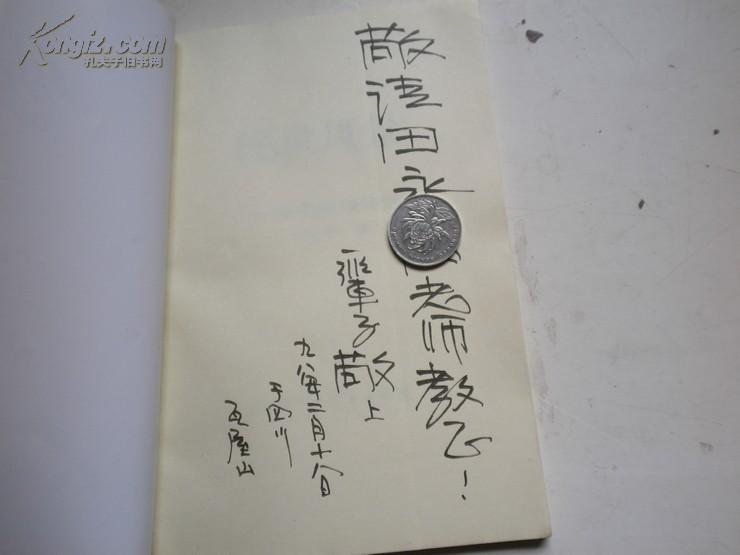 Kongfz.com
孔夫子旧书网
敬请田永 老师教正！
子敬上
九八年二月十八日
于四川
瓦屋山